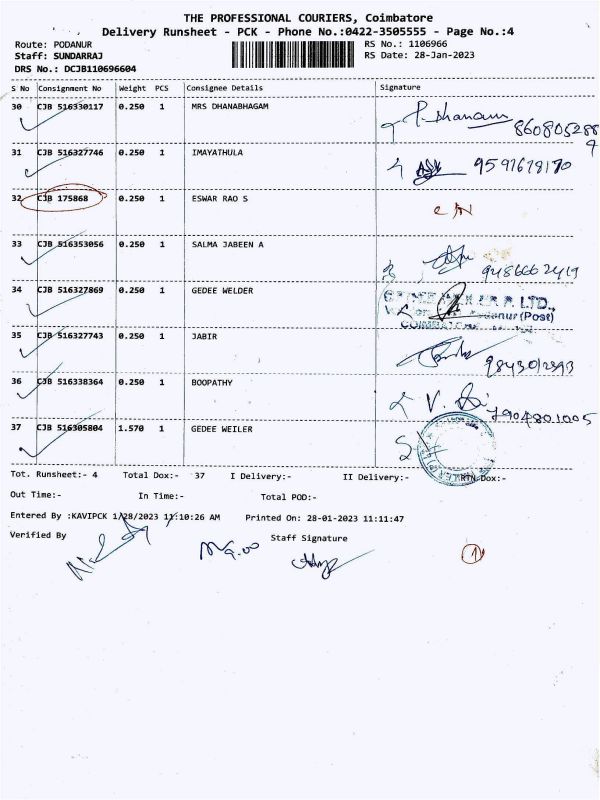 THE PROFESSIONAL COURIERS, Coimbatore
Delivery Runsheet - PCK - Phone No.:0422-3505555 - Page No.:4
Route: PODANUR
RS No.: 1106966
Staff: SUNDARRAJ
RS Date: 28-Jan-2023
DRS No.: DCJB110696604
S No Consignment No Weight PCS Consignee Details Signature
30 CJB 516330117 0.250 1 MRS DHANABHAGAM P. Dhanam
8608052889
31 CJB 516327746 0.250 1 IMAYATHULA 9591678170
32 CJB 175868 0.250 1 ESWAR RAO S
C/N
33 CJB 516353056 0.250 1 SALMA JABEEN A
9486662419
34 CJB 516327869 0.250 1 GEDEE WELDER
P. LTD.,
Podanur (Post)
35 CJB 516327743 0.250 1 JABIR
9843012393
36 CJB 516338364 0.250 1 BOOPATHY V.
7904801005
37 CJB 516305804 1.570 1 GEDEE WEILER
Tot. Runsheet:- 4 Total Dox:- 37 I Delivery:- II Delivery:- RTN Dox:-
Out Time:- In Time:- Total POD:-
Entered By :KAVIPCK 1/28/2023 11:10:26 AM Printed On: 28-01-2023 11:11:47
Verified By Staff Signature
9.00
1